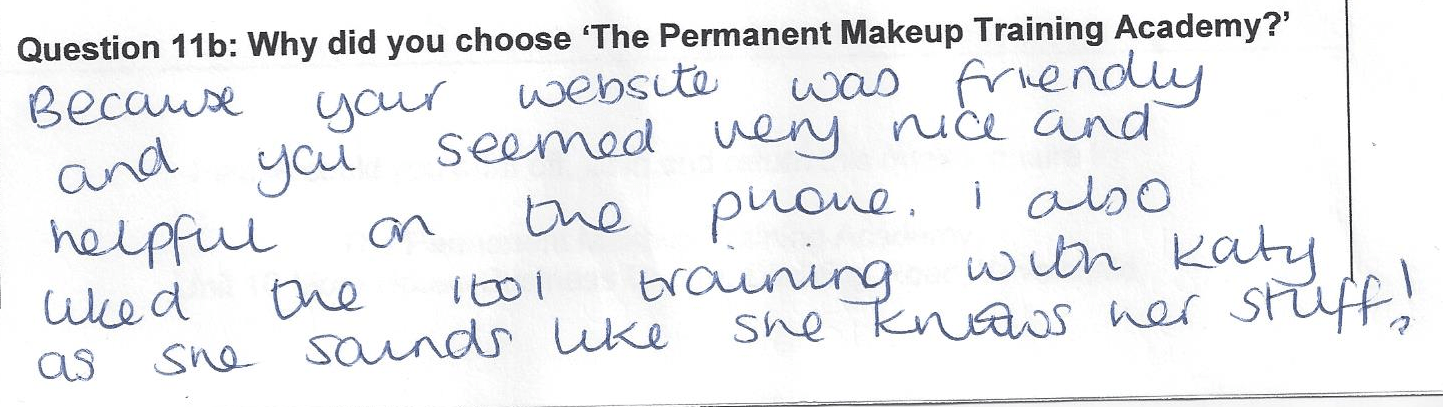 Question 11b: Why did you choose ‘The Permanent Makeup Training Academy?’
Because your website was friendly
and you seemed very nice and
helpful on the phone. i also
liked the 1to1 training with Katy
as she sounds like she knows her stuff!